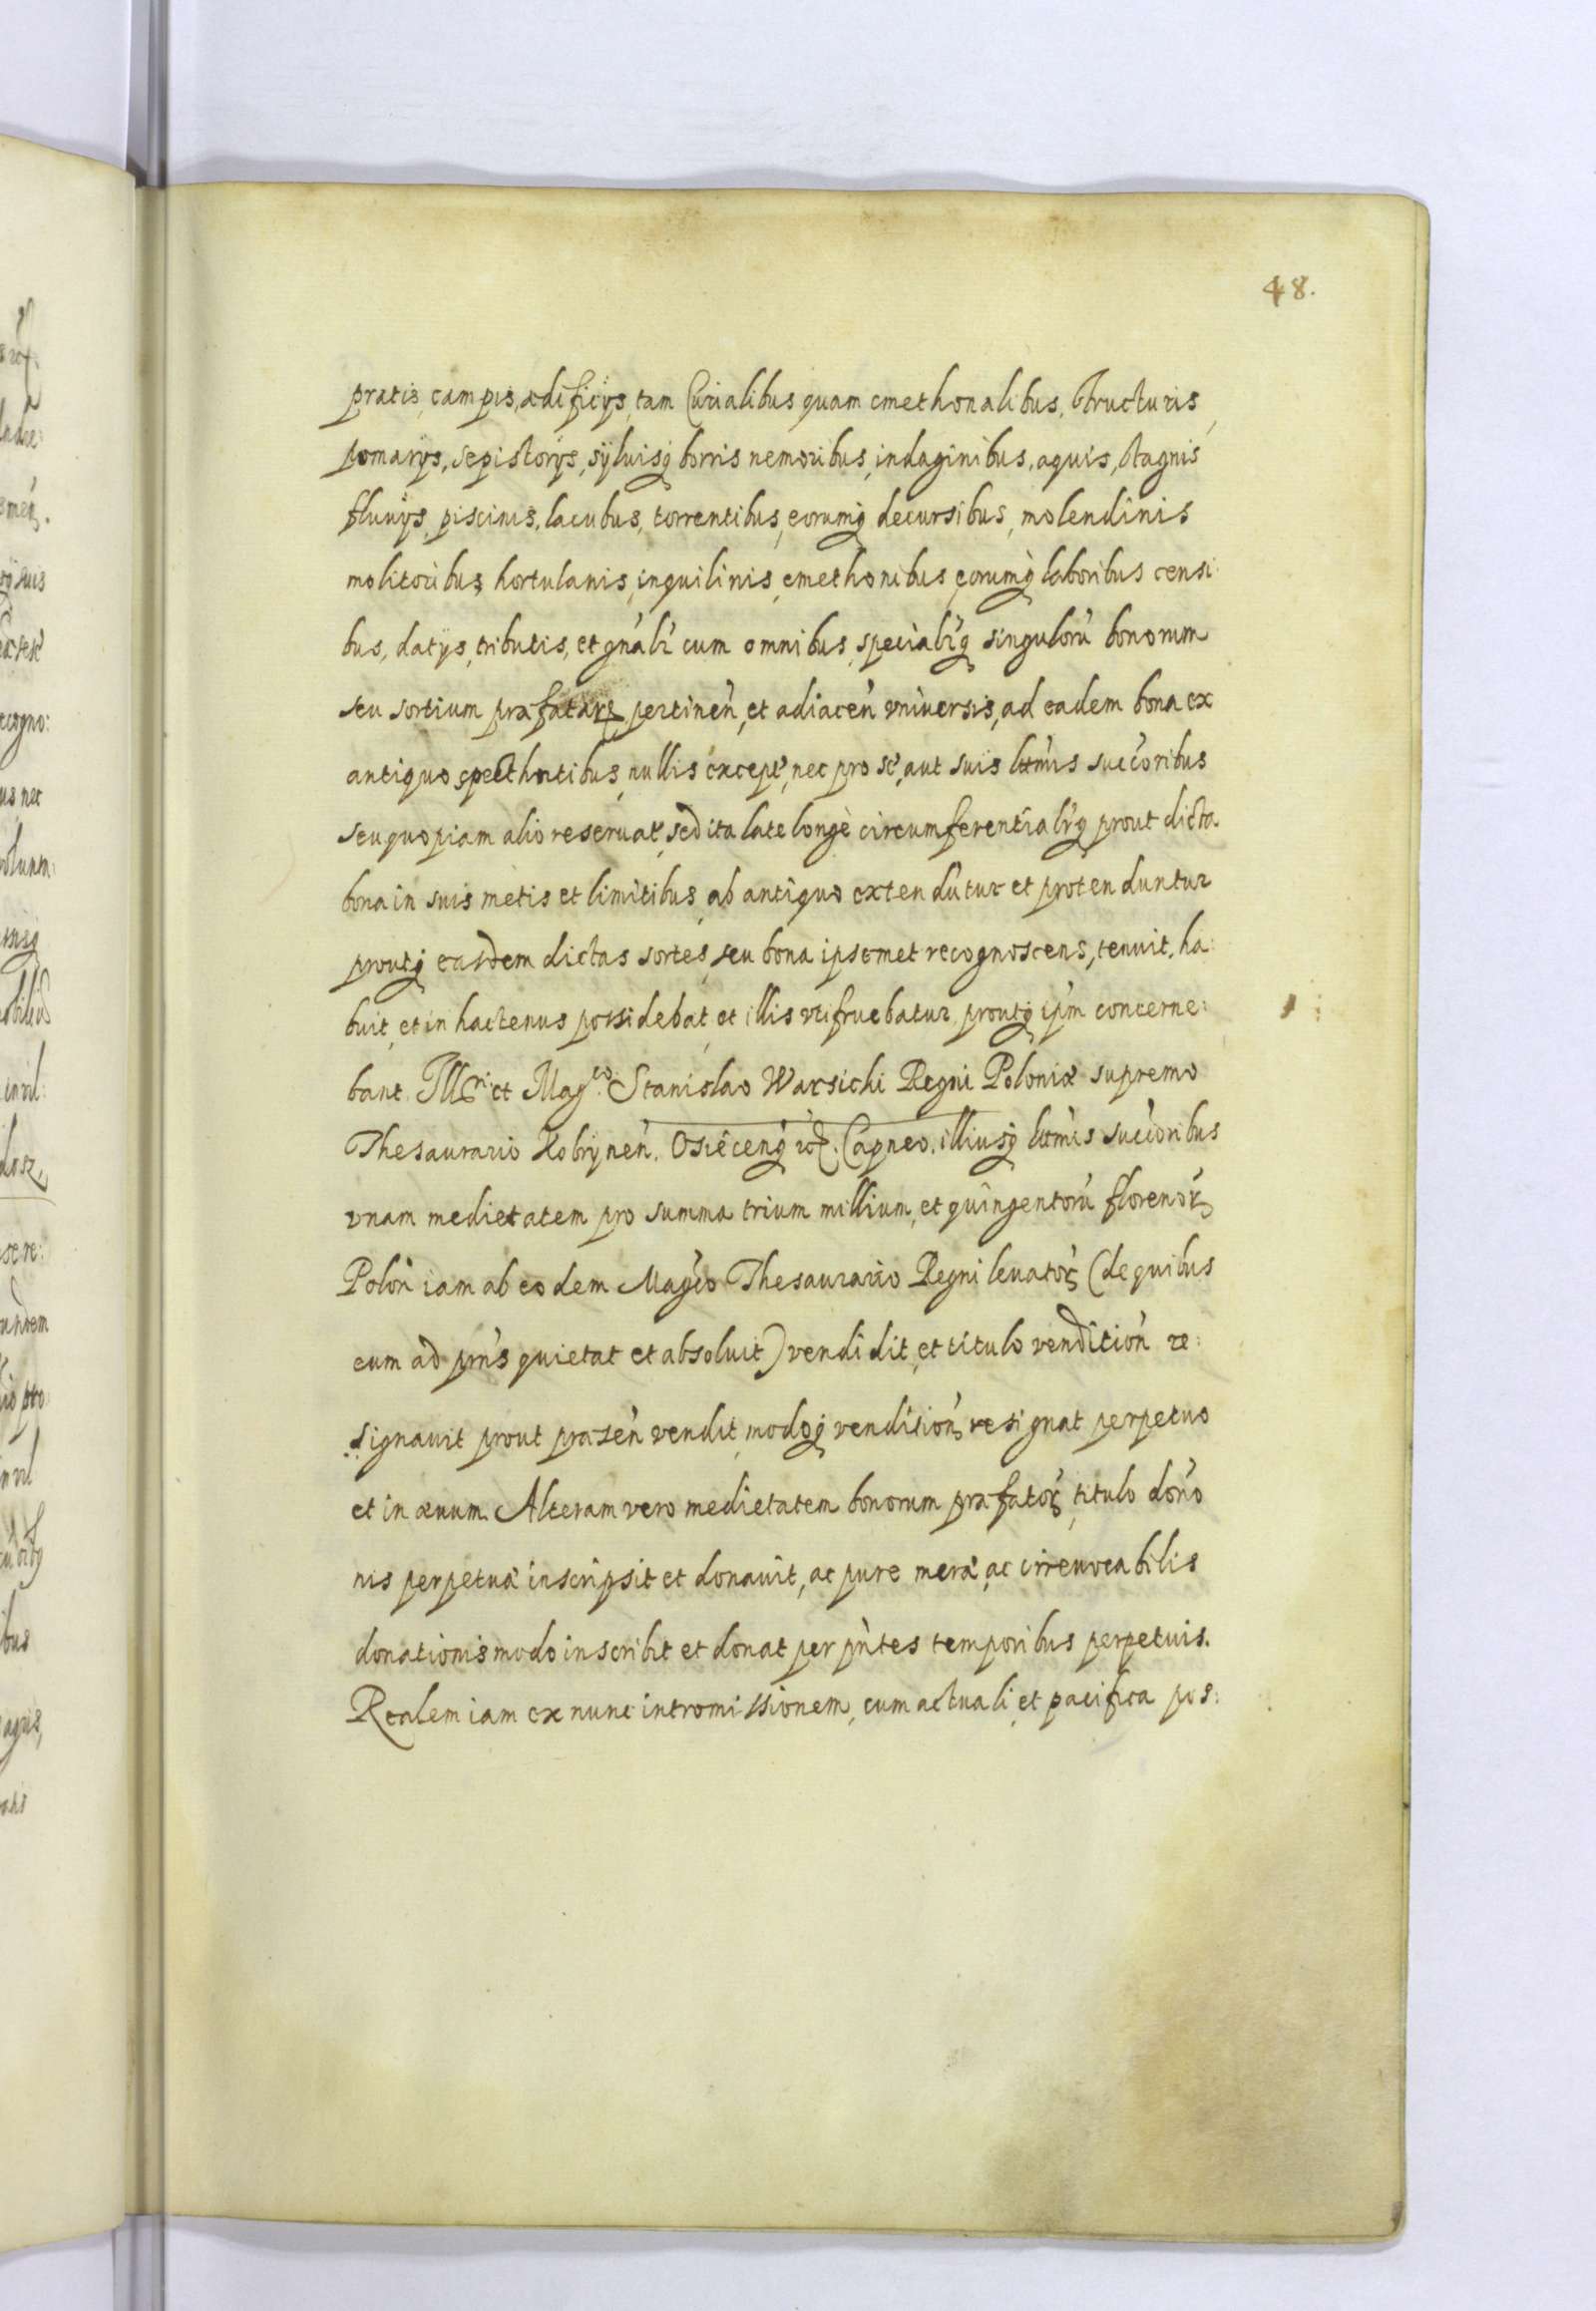 48.
pratis, campis, ædificijs, tam Curialibus quam cmethonalibus, structuris,
pomarijs, sepistorijs, syluisq borris nemoribus, indaginibus, aquis, stagnis
fluuijs, piscinis, lacubus, torrentibus, eorumq decursibus, molendinis
molitoribus, hortulanis, inquilinis, cmethonibus eorumq laboribus censi:
bus, datijs, tributis, et gnãlr cum omnibus, speciàlrq singulorũ bonorum
seu sortium præfatarũ pertineñ, et adiaceñ vniuersis, ad eadem bona ex
antiquo specthntibus, nullis except, nec pro se, aut suis lttmis succoribus
seu quopiam alio reseruat, sed ita late longè circumferentialrq prout dicta
bona in suis metis et limitibus, ab antiquo extendũtur et protenduntur
proutq easdem dictas sortes, seu bona ipsemet recognoscens, tenuit, ha:
buit, et in hactenus possidebat, et illis vtifruebatur, proutq ipm concerne:
bant. Illri et Magco Stanislao Warsichi Regni Poloniæ supremo
Thesaurario Kobryneñ. Osiêcenq etc. Capneo, illiusq lttmis succoribus
vnam medietatem pro summa trium millium, et quingentorũ florenor
Poloñ iam ab eodem Magco Thesaurario Regni leuator (de quibus
eum ad pñs quietat et absoluit) vendidit, et titulo venditioñ re:
signauit prout præseñ vendit, modoq venditioñ resignat perpetuo
et in æuum. Alteram vero medietatem bonorum præfator, titulo doño
nis perpetuæ inscripsit et donauit, ac pure meræ, ac irreuocabilis
donationis modo inscribit et donat per pñtes temporibus perpetuis.
Realem iam ex nunc intromissionem, cum actuali, et pacifica pos: